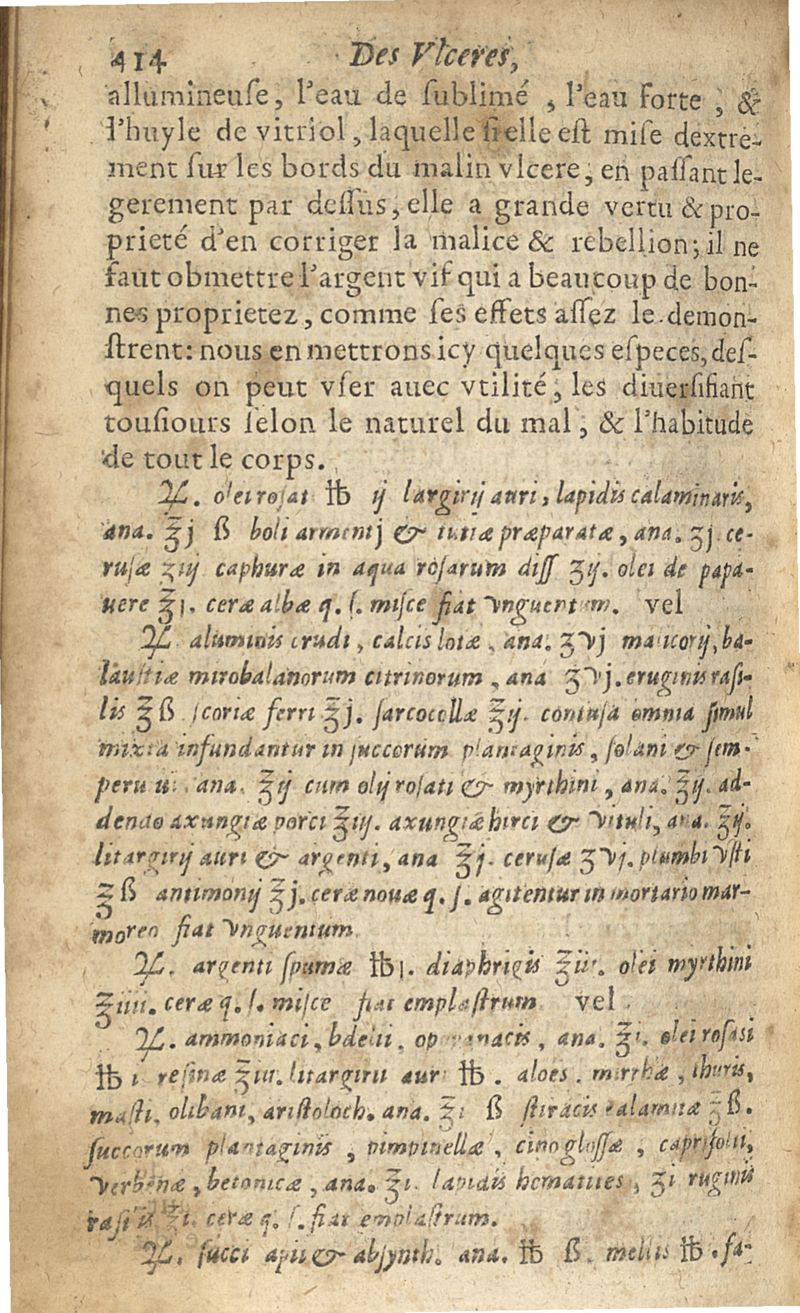 414 Des Vlceres,
allumineuſe, l'eau de ſublimé, l'eau Forte, &
l'huyle de vitriol, laquelle ſi elle eſt miſe dextre-
ment ſur les bords du malin vlcere, en paſſant le-
gerement par deſſus, elle a grande vertu & pro-
prieté d'en corriger la malice & rebellion; il ne
faut obmettre l'argent vif qui a beaucoup de bon-
nes proprietez, comme ſes effets aſſez le demon-
ſtrent: nous en mettrons icy quelques eſpeces, deſ-
quels on peut vſer auec vtilité, les diuerſifiant
touſiours ſelon le naturel du mal, & l'habitude
de tout le corps.
℞. olei roſat ℔ ij largirij auri, lapidis calaminaris,
ana. ℥j ß boli armenij & tutiæ præparatæ, ana. ʒj. ce-
ruſæ ʒiij caphuræ in aqua roſarum diſſ ʒij. olei de papa-
uere ℥j. ceræ albæ q. ſ. miſce fiat vnguentum. vel
℞. aluminis crudi, calcis lotæ, ana. ʒvj malicorij, ba-
lauſtiæ mirobalanorum citrinorum, ana ʒvj. eruginis raſi-
lis ℥ß ſcoriæ ferri ℥j. ſarcocollæ ℥ij. contuſa omnia ſimul
mixta infundantur in ſuccorum plantaginis, ſolani & ſem-
peru ui. ana. ℥ij cum olij roſati & myrthini, ana. ℥ij. ad-
dendo axungiæ porci ℥iij. axungiæ hirci & vituli, ana. ℥ij.
litargirij auri & argenti, ana ℥j. ceruſæ ʒvj. plumbi vſti
℥ß antimonij ℥j. ceræ nouæ q. ſ. agitentur in mortario mar-
moreo fiat vnguentum
℞. argenti ſpumæ ℔j. diaphrigis ℥iii. olei myrthini
℥iiii. ceræ q. ſ. miſce fiat emplaſtrum vel
℞. ammoniaci, bdelii, ana. ℥i. olei roſasi
℔ i reſinæ ℥iii. litargirii auri ℔. aloes. mirrhæ, thuris,
maſti, olibani, ariſtoloch. ana. ℥i ß ſtiracis calamitæ ℥ß.
ſuccorum plantaginis, pimpinellæ, cinogloſſæ, caprifolii,
verbenæ, betonicæ, ana. ℥i. lapidis hematites, ʒi ruginis
raſilis ℥i. ceræ q. ſ. fiat emplaſtrum.
℞. ſucci apii & abſynth. ana. ℔ ß. mellis ℔. fa-